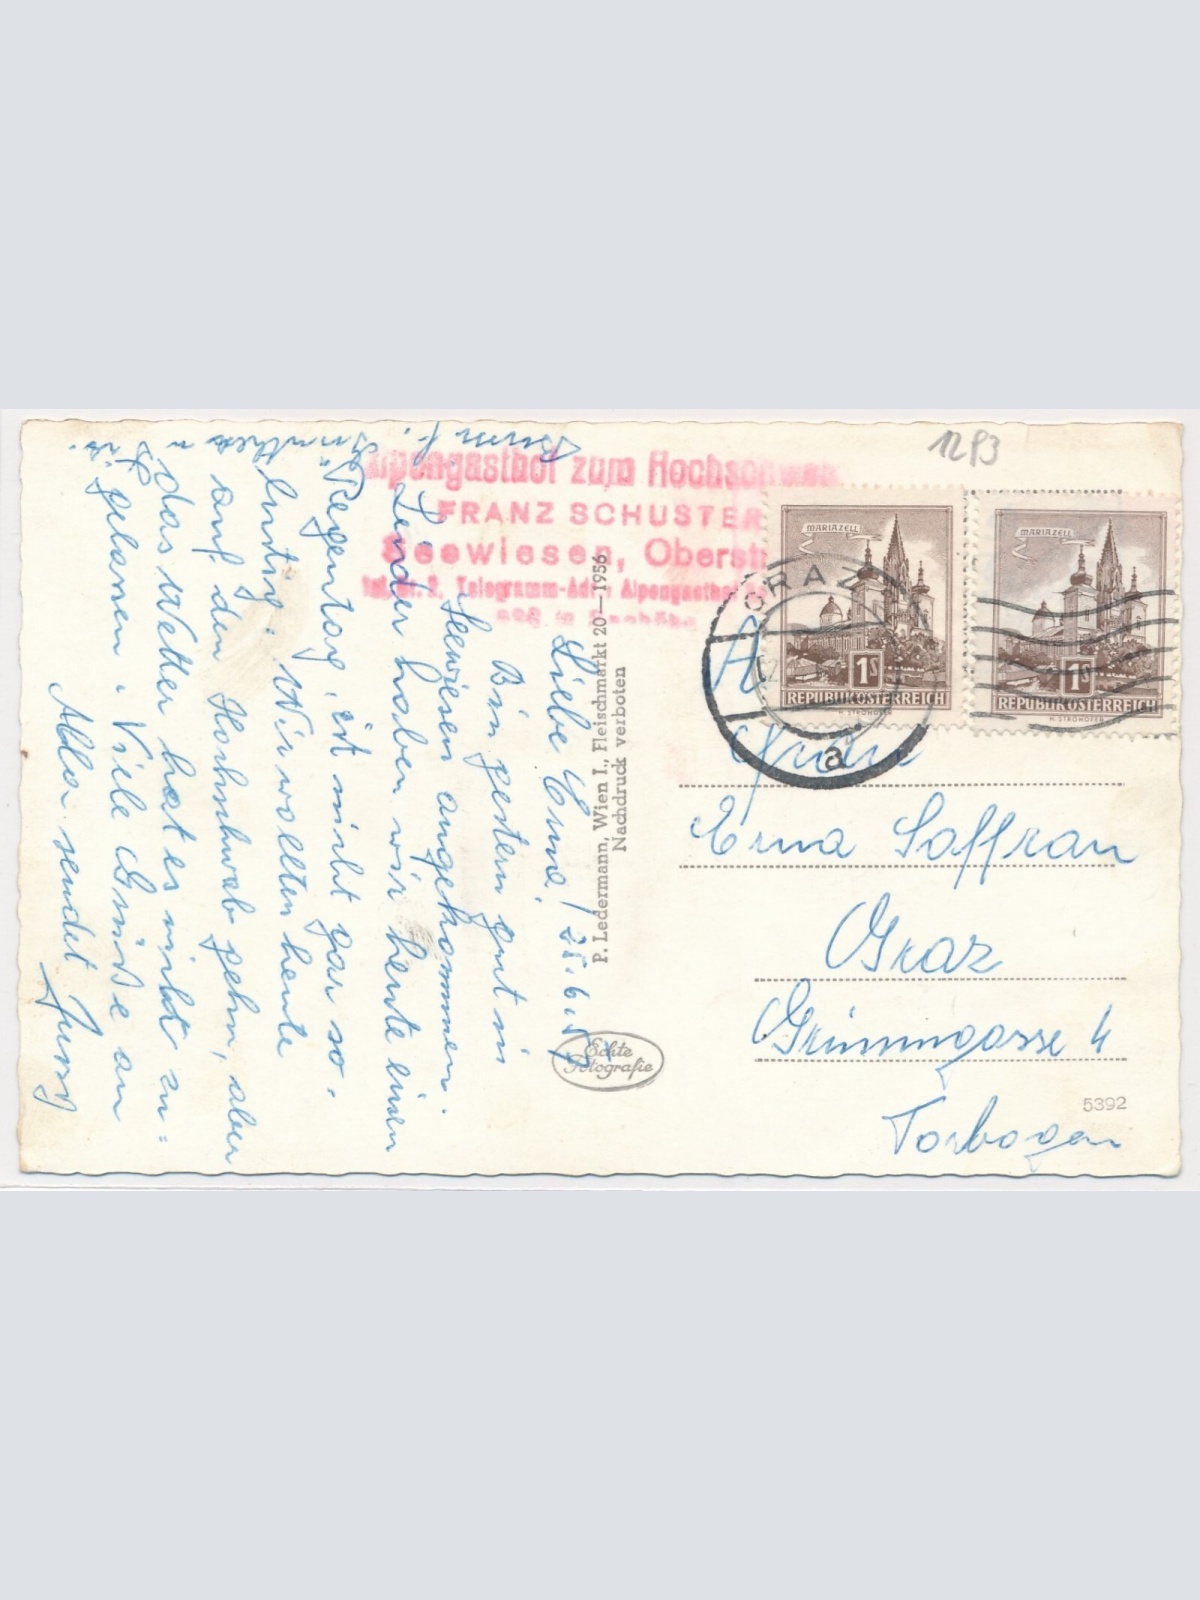 12 P3
Alpengasthof zum Hochschwab
FRANZ SCHUSTER
Seewiesen, Oberst
Telegramm-Adr. Alpengasthof
MARIAZELL
1S
REPUBLIK ÖSTERREICH
H. STROHOFER
MARIAZELL
1S
REPUBLIK ÖSTERREICH
H. STROHOFER
GRAZ
a
Liebe Erna! 25.6.
Bin gestern gut in
Seewiesen angekommen.
Leider haben wir heute einen
Regentag, ist nicht gar so
lustig. Wir wollten heute
auf den Hochschwab gehn, aber
das Wetter hat es nicht zu=
gelassen. Viele Grüße an
Alle sendet
P. Ledermann, Wien I., Fleischmarkt 20—1956
Nachdruck verboten
Echte
Fotografie
An
Frau
Erna Saffran
Graz
Grüninggasse 4
Torbogen
5392